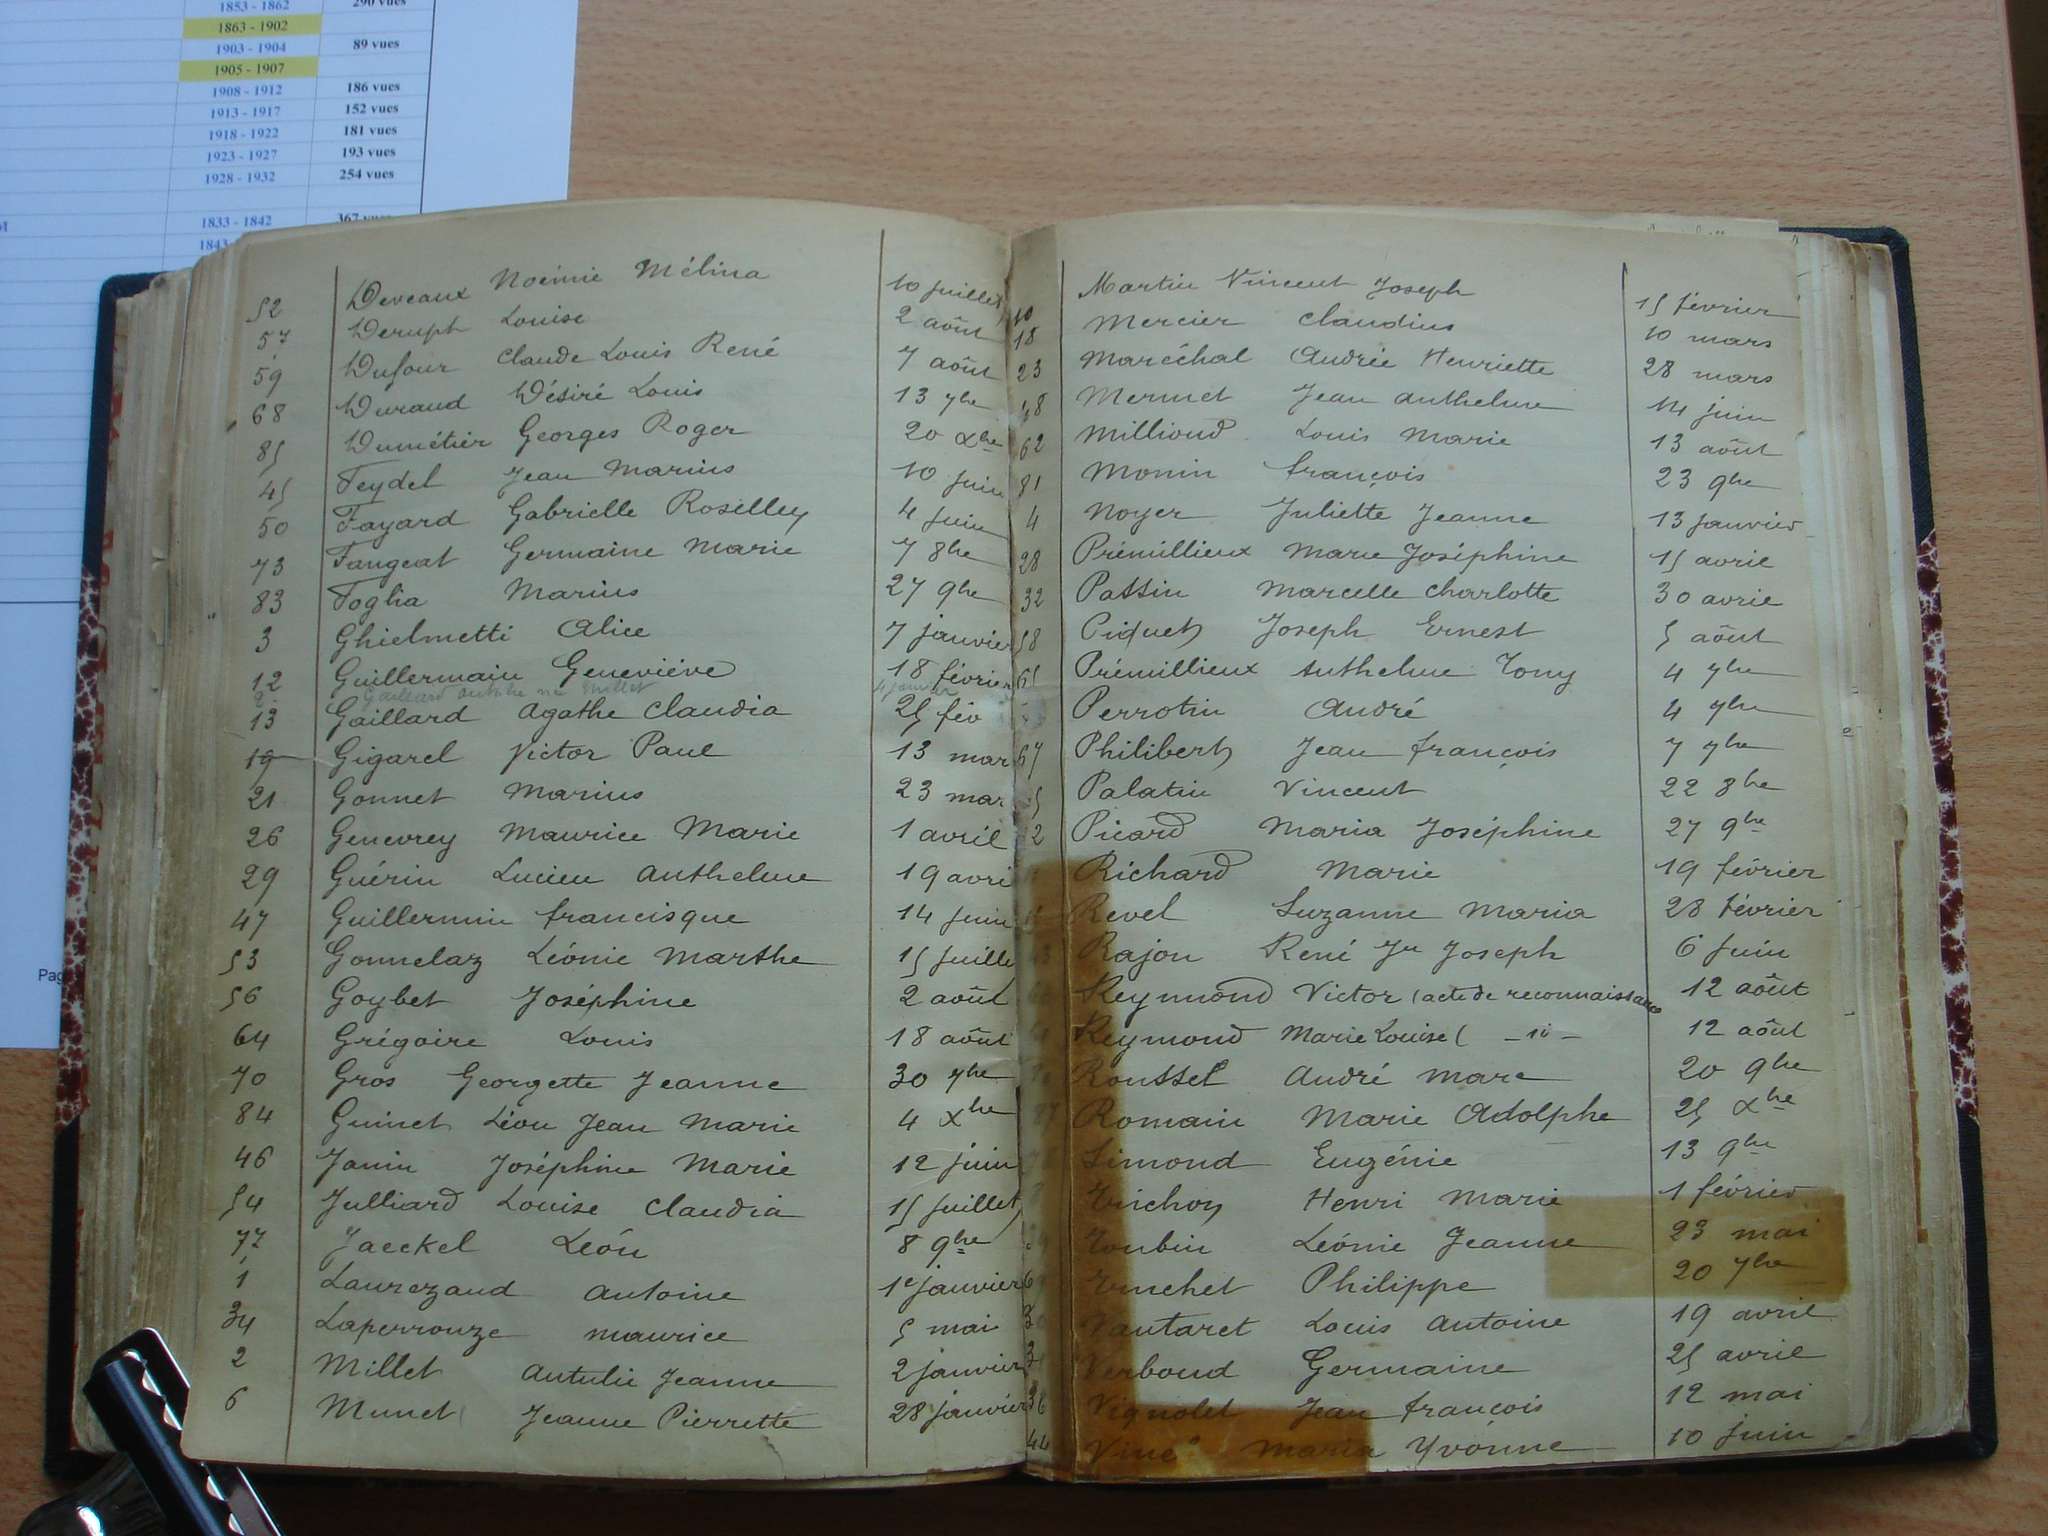 1853 - 1862 290 vues
1863 - 1902
1903 - 1904 89 vues
1905 - 1907
1908 - 1912 186 vues
1913 - 1917 152 vues
1918 - 1922 181 vues
1923 - 1927 193 vues
1928 - 1932 254 vues
1833 - 1842 367 vues
1843
Pag
52 Deveaux Noémie Mélina 10 juillet
57 Deruph Louise 2 aôut
59 Dufour Claude Louis René 7 aôut
68 Durand Désiré Louis 13 7bre
85 Dumétier Georges Roger 20 Xbre
45 Feydel Jean Marius 10 juin
50 Fayard Gabrielle Roselley 4 juin
73 Fangeat Germaine Marie 7 8bre
83 Foglia Marius 27 9bre
3 Ghielmetti Alice 7 janvier
12 Guillermain Geneviève 18 février
2 Gaillard née Millet 4 janvier
13 Gaillard Agathe Claudia 25 fév
19 Gigarel Victor Paul 13 mar
21 Gonnet Marius 23 mar
26 Genevrey Maurice Marie 1 avril
29 Guérin Lucien Anthelme 19 avri
47 Guillermin francisque 14 juin
53 Gonnelaz Léonie Marthe 15 juille
56 Goybet Joséphine 2 aôut
64 Grégoire Louis 18 aôut
70 Gros Georgette Jeanne 30 7bre
84 Guinet Léon Jean Marie 4 Xbre
46 Janin Joséphine Marie 12 juin
54 Julliard Louise Claudia 15 juillet
77 Jaeckel Léon 8 9bre
1 Laurezand Antoine 1e janvier
34 Laperrouze Maurice 5 mai
2 Millet Antulie Jeanne 2 janvier
6 Munet Jeanne Pierrette 28 janvier
10 Martin Vincent Joseph 15 février
18 Mercier Claudius 10 mars
23 Maréchal Andrée Henriette 28 mars
48 Mermet Jean Anthelme 14 juin
62 Milliond Louis Marie 13 aôut
81 Monin françois 23 9bre
4 Noyer Juliette Jeanne 13 janvier
28 Prémillieux Marie Joséphine 15 avril
32 Passin Marcelle Charlotte 30 avril
58 Piquet Joseph Ernest 5 aôut
65 Prémillieux Anthelme Tony 4 7bre
Perrotin André 4 7bre
67 Philibert Jean françois 7 7bre
5 Palatin Vincent 22 8bre
2 Picard Maria Joséphine 27 9bre
Richard Marie 19 février
Revel Suzanne Maria 28 février
Rajon René Jn Joseph 6 juin
Reymond Victor (acte de reconnaissance 12 aôut
Reymond Marie Louise ( - id - 12 aôut
Roussel André Marc 20 9bre
87 Romain Marie Adolphe 25 Xbre
Simond Eugénie 13 9bre
Trichon Henri Marie 1 février
Toubin Léonie Jeanne 23 mai
6 Truchet Philippe 20 7bre
30 Vautaret Louis Antoine 19 avril
3 Verboud Germaine 25 avril
36 Vignolet Jean françois 12 mai
44 Maria Yvonne 10 juin